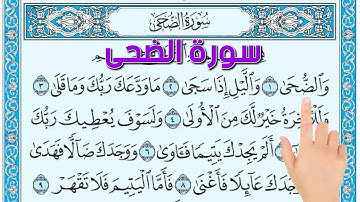 سُورَةُ الضُّحَى
سورة الضحى
وَالضُّحَى ١ وَالَّيْلِ إِذَا سَجَى ٢ مَا وَدَّعَكَ رَبُّكَ وَمَا قَلَى ٣
خَيْرٌ لَّكَ مِنَ الْأُولَى ٤ وَلَسَوْفَ يُعْطِيكَ رَبُّكَ
أَلَمْ يَجِدْكَ يَتِيمًا فَآوَى ٦ وَوَجَدَكَ ضَالًّا فَهَدَى
عَائِلًا فَأَغْنَى ٨ فَأَمَّا الْيَتِيمَ فَلَا تَقْهَرْ ٩